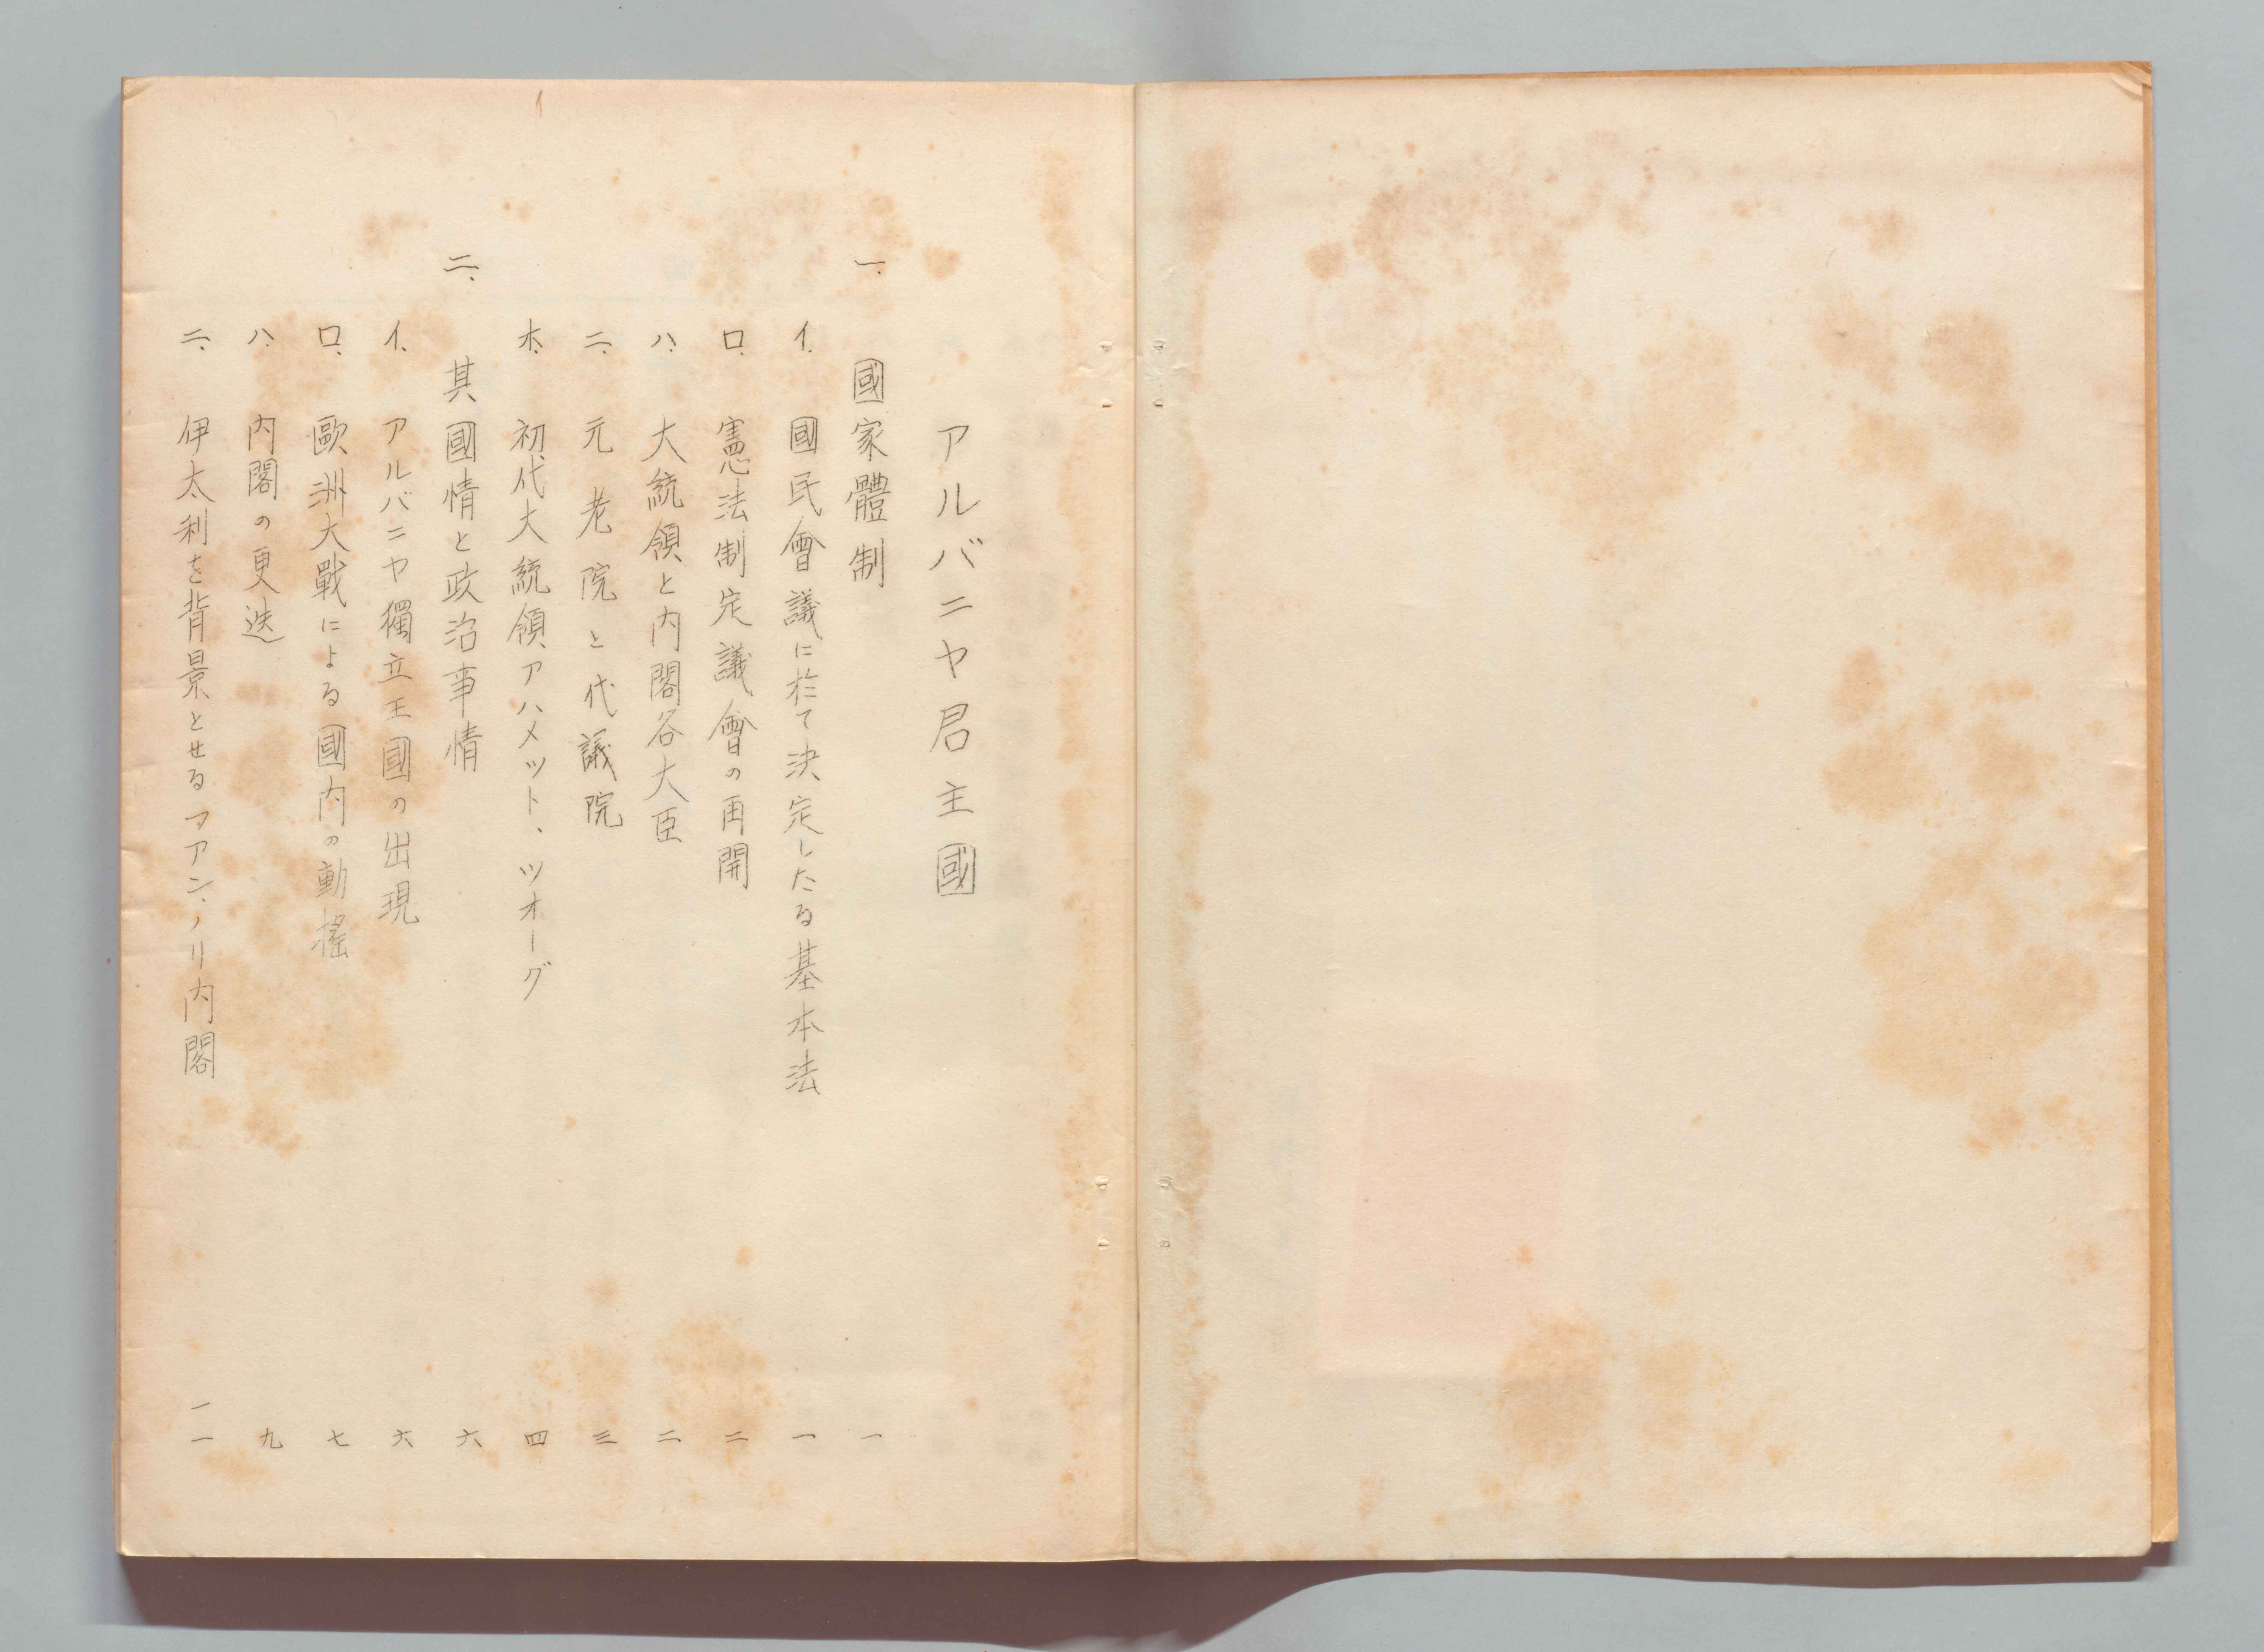 アルバニヤ君主國
一、國家體制 一
イ、國民會議に於て決定したる基本法 一
ロ、憲法制定議會の再開 二
ハ、大統領と内閣各大臣 二
ニ、元老院と代議院 三
ホ、初代大統領アハメット、ツオーグ 四
二、其國情と政治事情 六
イ、アルバニヤ獨立王國の出現 六
ロ、歐洲大戰による國内の動搖 七
ハ、内閣の更迭 九
ニ、伊太利を背景とせるファン、ノリ内閣 一一